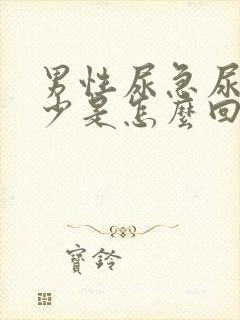 男性尿急尿
少是怎麼回
寶鈴